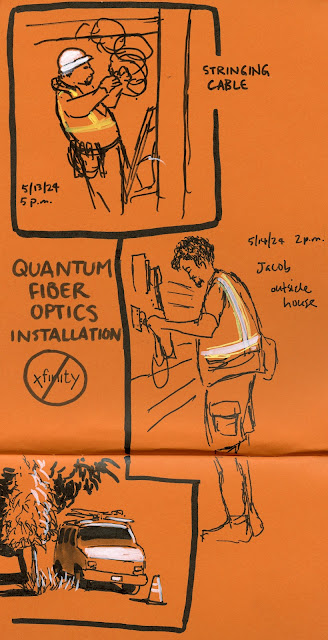 STRINGING
CABLE
5/13/24
5 p.m.
5/14/24 2 p.m.
Jacob
outside
house
QUANTUM
FIBER
OPTICS
INSTALLATION
xfinity